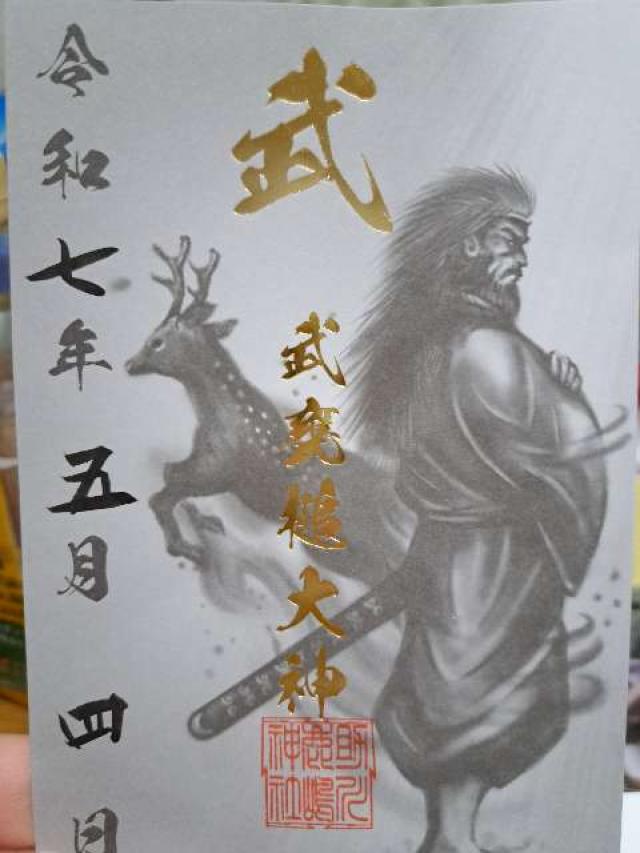 武
武甕槌大神
助川
鹿嶋
神社
令和七年五月四日